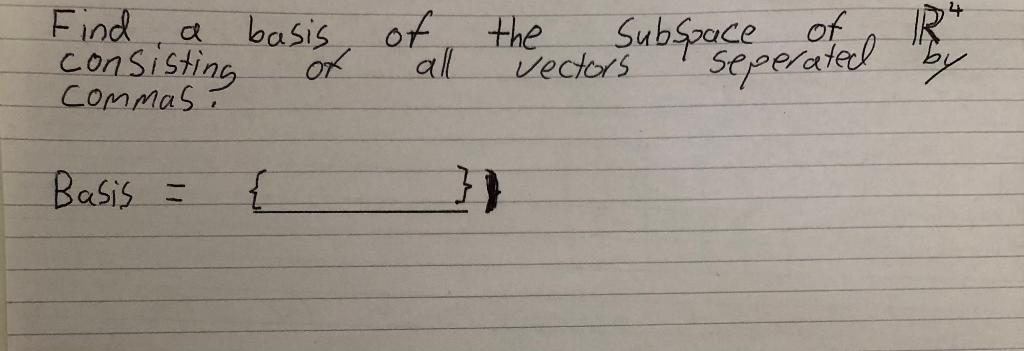 Find a basis of the Subspace of ℝ⁴
consisting of all vectors seperated by
commas?
Basis = { }